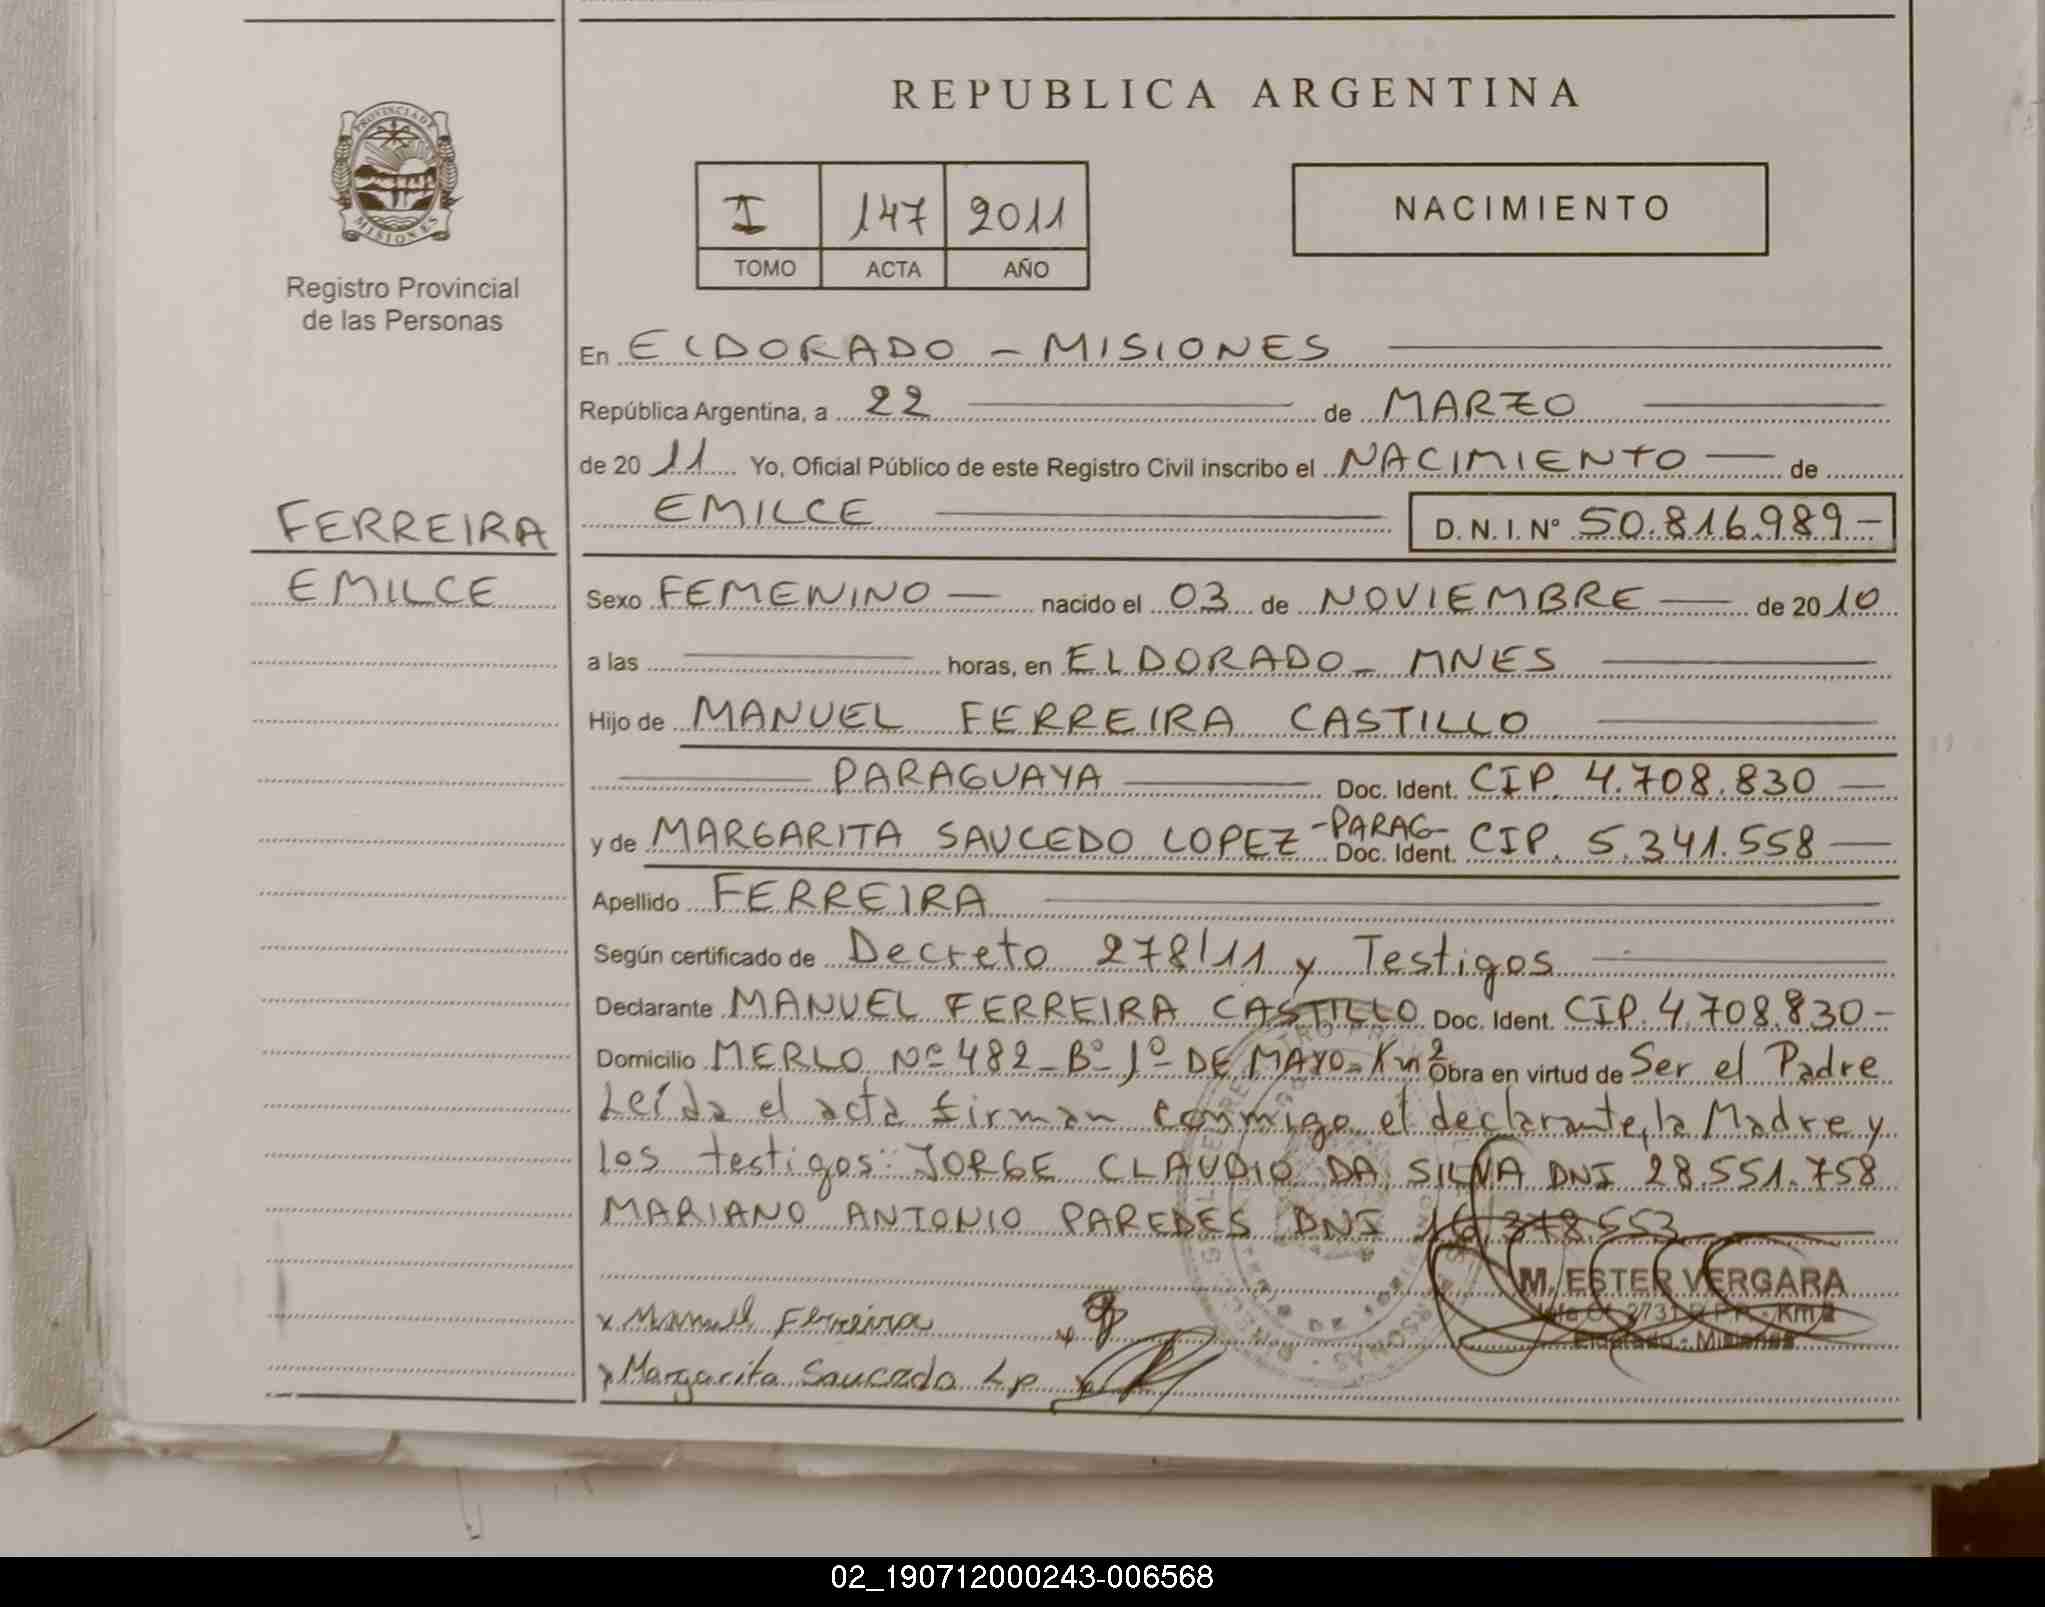 REPUBLICA ARGENTINA
PROVINCIA DE
MISIONES
Registro Provincial
de las Personas
I 147 2011
TOMO ACTA AÑO
NACIMIENTO
En ELDORADO - MISIONES
República Argentina, a 22 de MARZO
de 20 11 Yo, Oficial Público de este Registro Civil inscribo el NACIMIENTO de
FERREIRA
EMILCE
EMILCE D. N. I. N° 50.816.989-
Sexo FEMENINO nacido el 03 de NOVIEMBRE de 2010
a las horas, en ELDORADO - MNES
Hijo de MANUEL FERREIRA CASTILLO
PARAGUAYA Doc. Ident. CIP. 4.708.830
y de MARGARITA SAUCEDO LOPEZ -PARAG- Doc. Ident. CIP. 5.341.558
Apellido FERREIRA
Según certificado de Decreto 278/11 y Testigos
Declarante MANUEL FERREIRA CASTILLO Doc. Ident. CIP. 4.708.830-
Domicilio MERLO Nº 482 - Bº 1º DE MAYO - Km 2 Obra en virtud de Ser el Padre
Leída el acta firman conmigo el declarante, la Madre y
los testigos: JORGE CLAUDIO DA SILVA DNI 28.551.758
MARIANO ANTONIO PAREDES DNI 16.378.553
M. ESTER VERGARA
2731 R.P.P. - Km 2
Eldorado - Misiones
x Manuel Ferreira
x Margarita Saucedo Lp
02_190712000243-006568